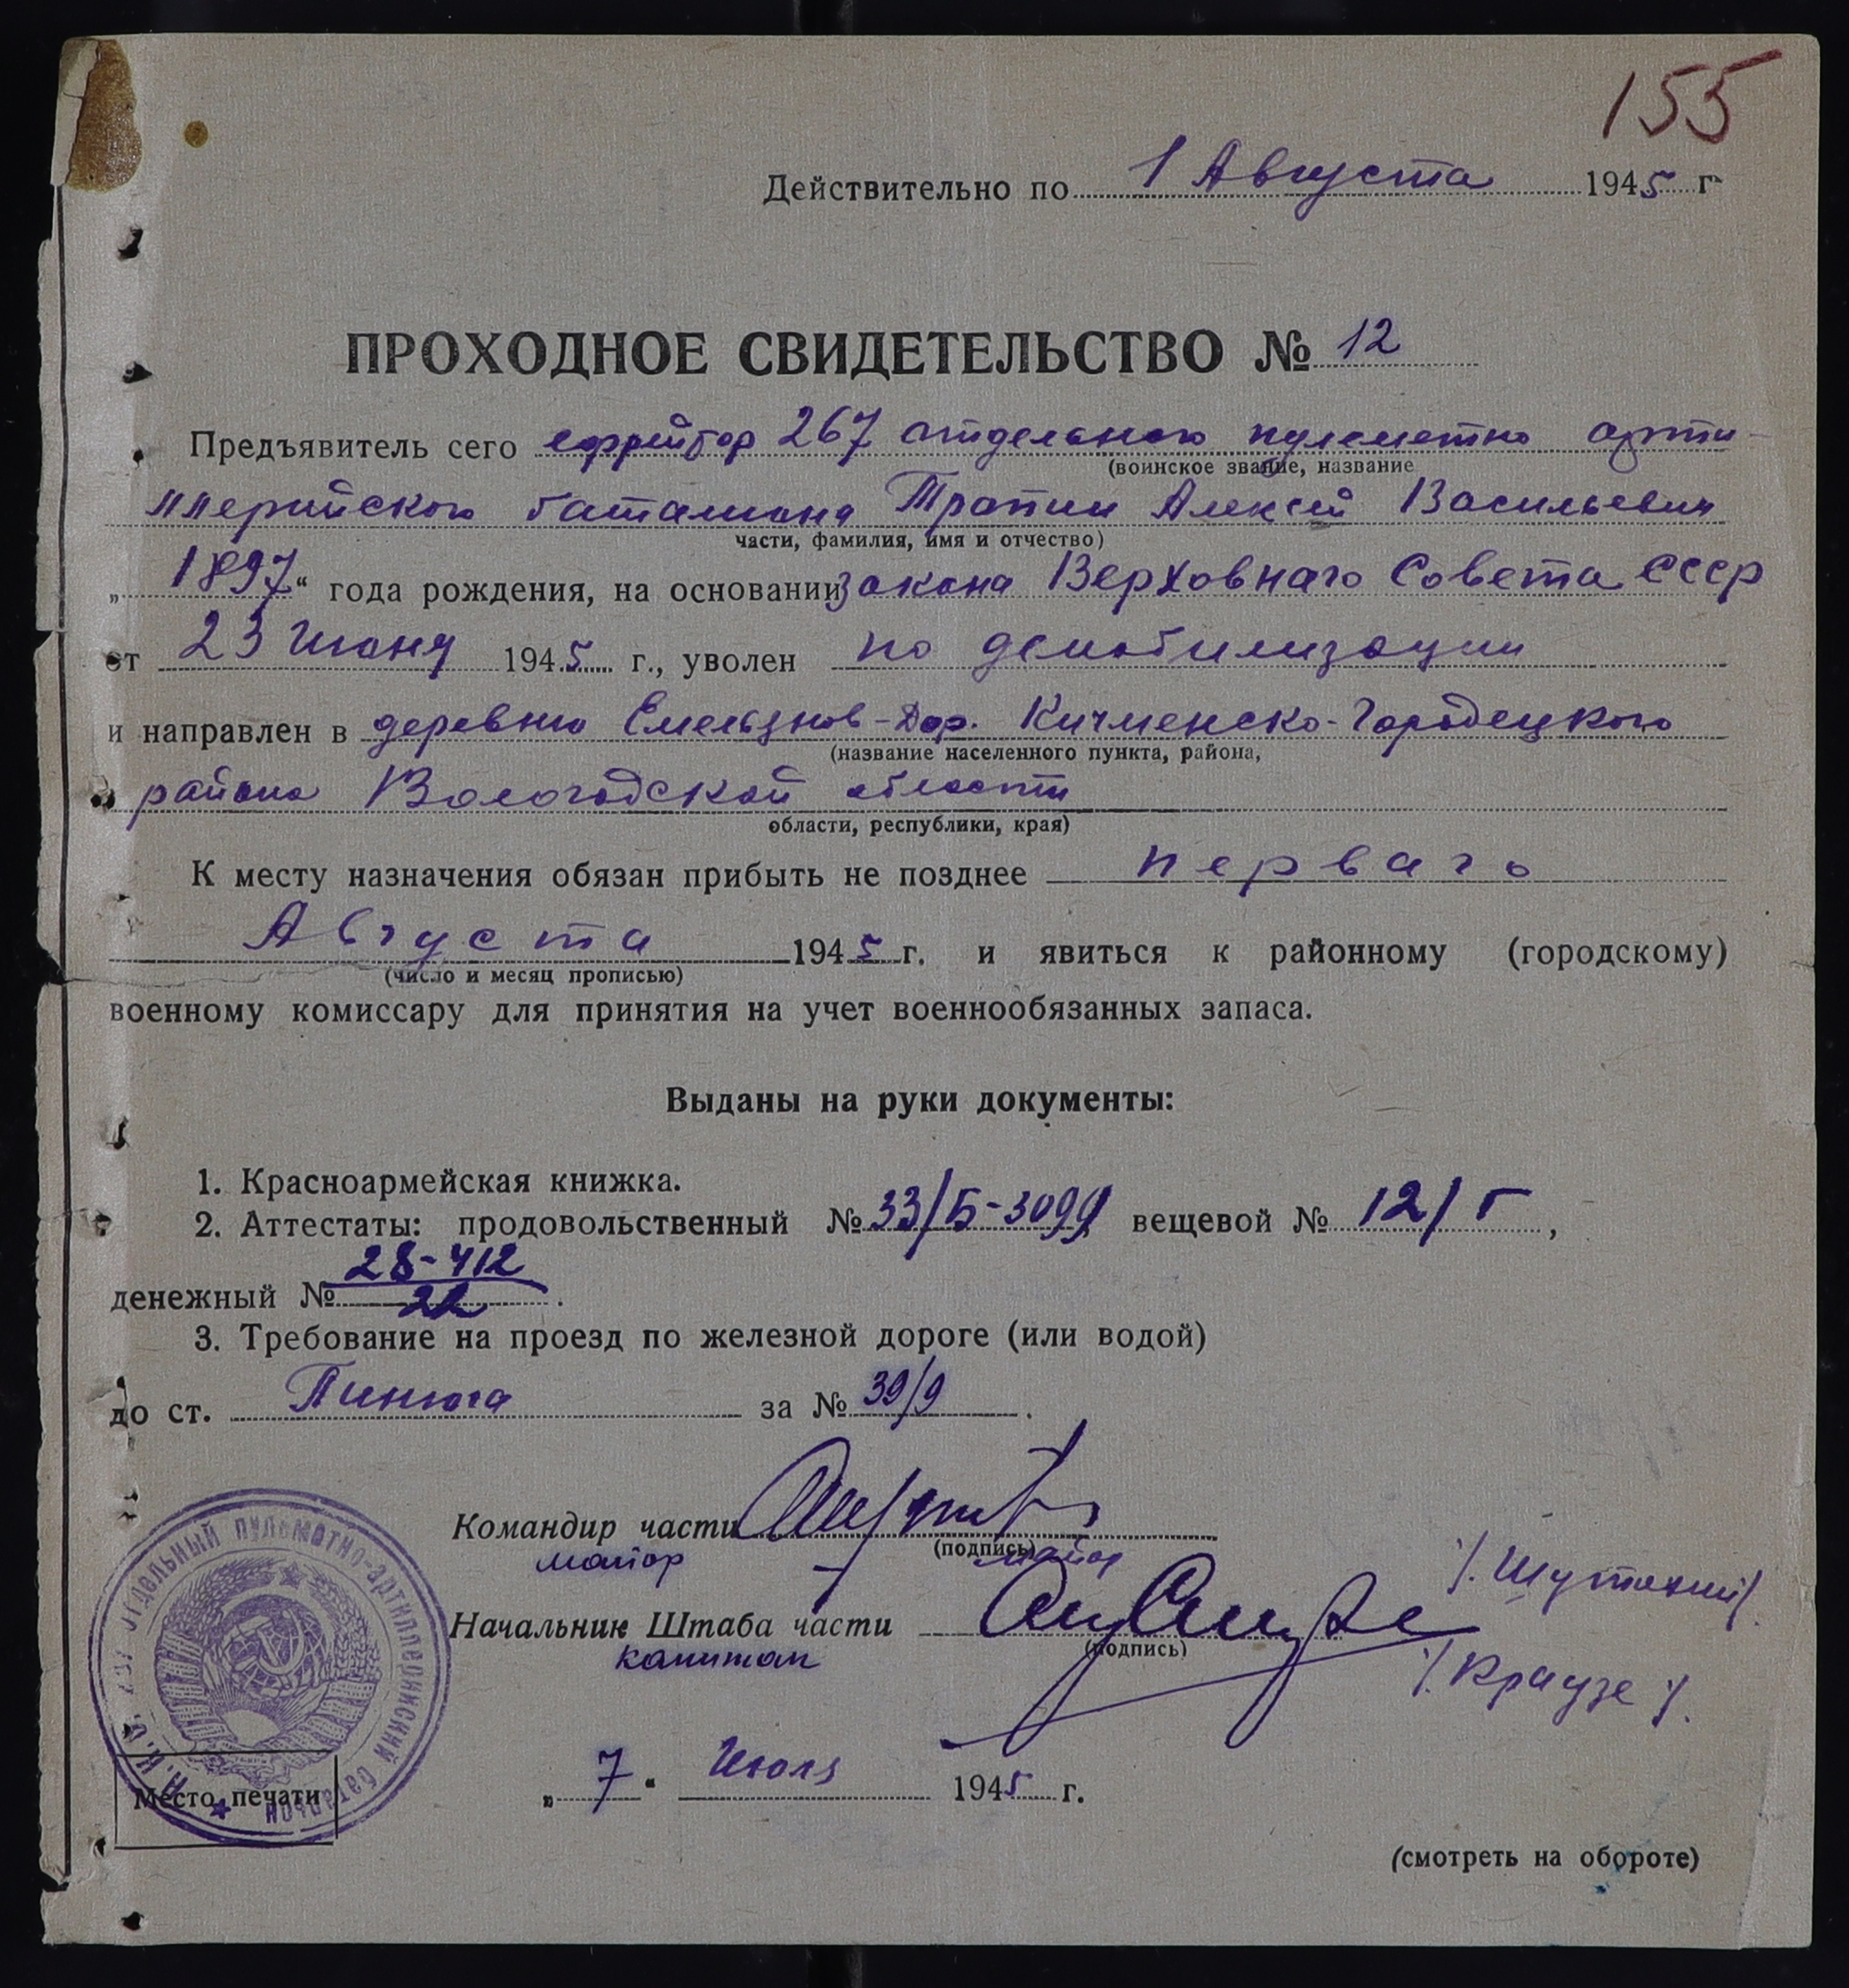 155
Действительно по 1 Августа 1945 г
ПРОХОДНОЕ СВИДЕТЕЛЬСТВО № 12
Предъявитель сего ефрейтор 267 отдельного пулеметно арти-
(воинское звание, название
ллерийского баталиона Трапин Алексей Васильевич
части, фамилия, имя и отчество)
„1897“ года рождения, на основании закона Верховнаго Совета СССР
от 23 Июня 1945 г., уволен по демобилизации
и направлен в деревню Емельянов-Дор. Кичменско-Городецкого
(название населенного пункта, района,
района Вологодской области
области, республики, края)
К месту назначения обязан прибыть не позднее перваго
Августа 1945 г. и явиться к районному (городскому)
(число и месяц прописью)
военному комиссару для принятия на учет военнообязанных запаса.
Выданы на руки документы:
1. Красноармейская книжка.
2. Аттестаты: продовольственный № 33/Б-3099 вещевой № 12/Г,
денежный № 28-412
22
3. Требование на проезд по железной дороге (или водой)
до ст. Пинюга за № 39/9.
Командир части
(подпись)
майор майор /. Шутакий/.
Начальник Штаба части
(подпись)
капитан /. Краузе /.
„7“ Июля 1945 г.
Место печати
отдельный пульматно-артиллерийский баталион
(смотреть на обороте)